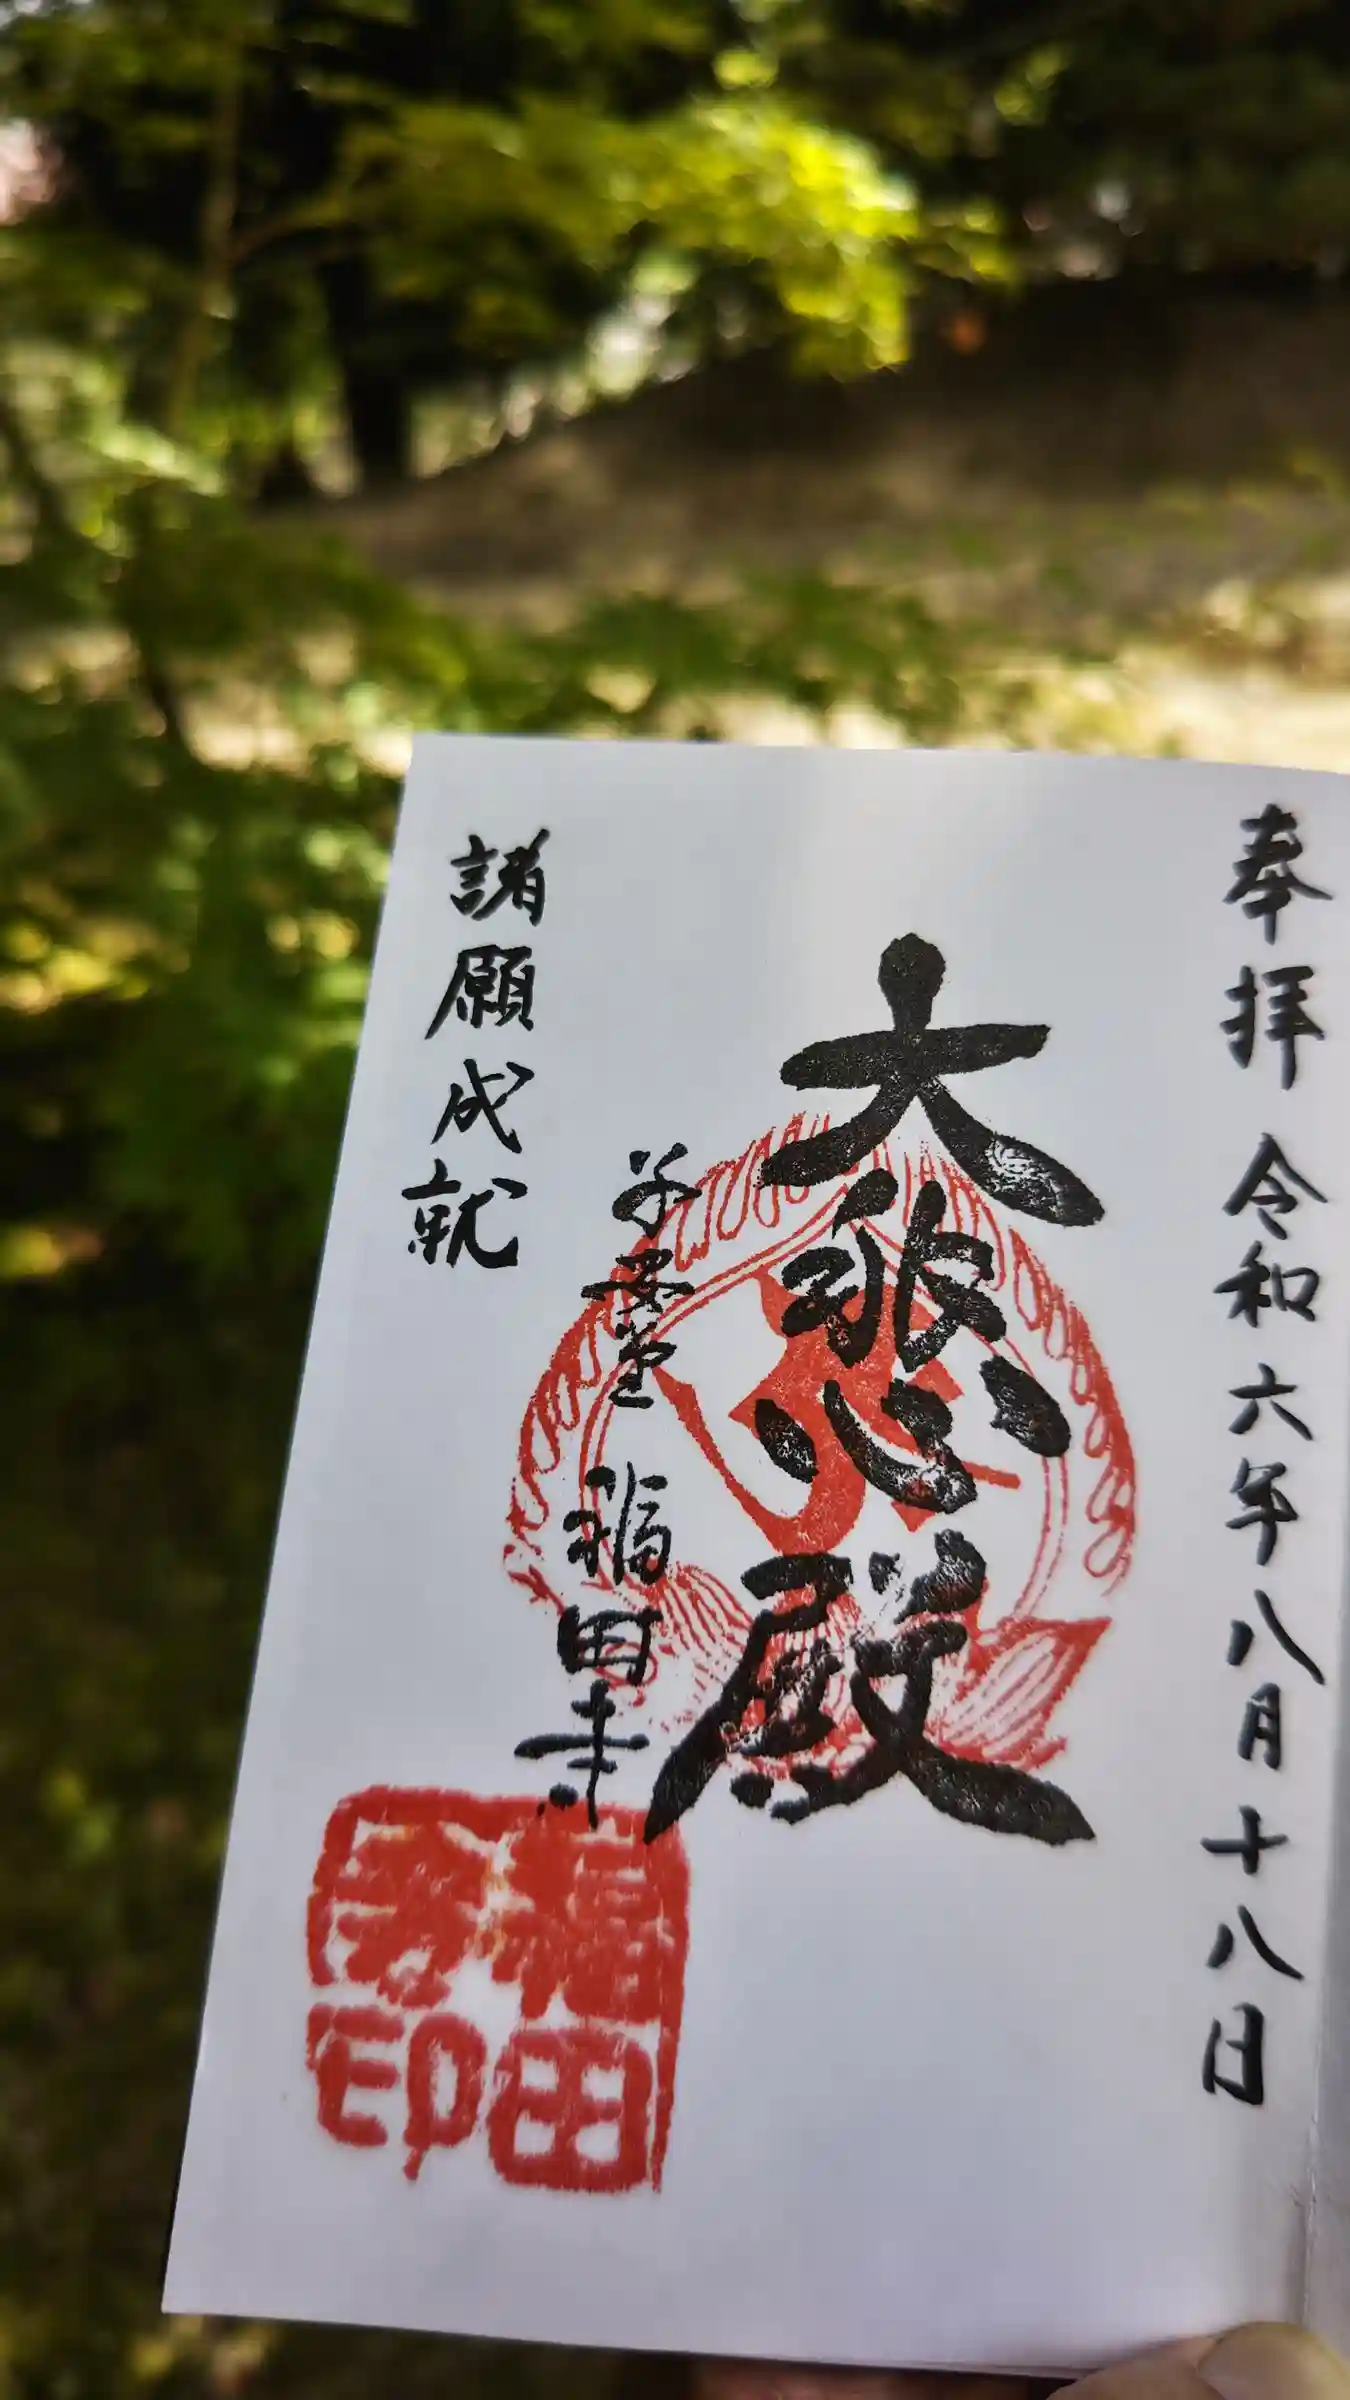 奉拝 令和六年八月十八日
大悲殿
子安堂 福田寺
諸願成就
福田寺印